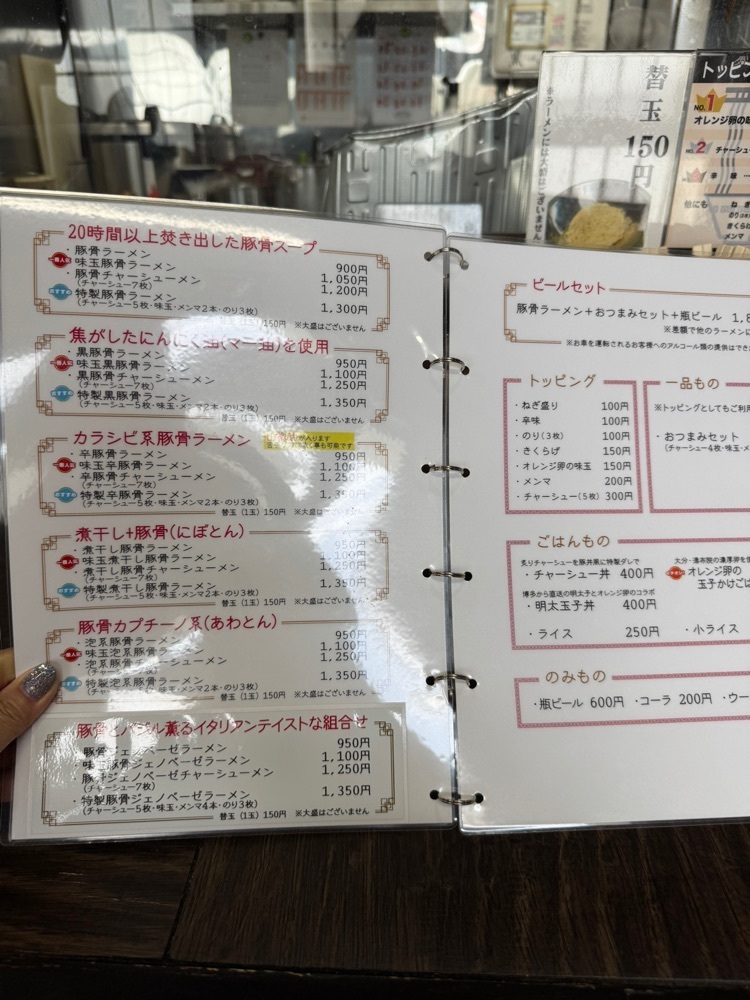 替玉
150円
※ラーメンには大盛はございません
トッピン
NO.1
オレンジ卵の味
NO.2 チャーシュー
辛味
他にも
ねぎ
のり(3
きくら
メンマ
20時間以上焚き出した豚骨スープ
・豚骨ラーメン 900円
一番人気 味玉豚骨ラーメン 1,050円
・豚骨チャーシューメン 1,200円
(チャーシュー7枚)
おすすめ 特製豚骨ラーメン 1,300円
(チャーシュー5枚・味玉・メンマ2本・のり3枚)
替玉 (1玉) 150円 ※大盛はございません
焦がしたにんにく油(マー油)を使用
・黒豚骨ラーメン 950円
一番人気 味玉黒豚骨ラーメン 1,100円
・黒豚骨チャーシューメン 1,250円
(チャーシュー7枚)
おすすめ 特製黒豚骨ラーメン 1,350円
(チャーシュー5枚・味玉・メンマ2本・のり3枚)
替玉 (1玉) 150円 ※大盛はございません
カラシビ系豚骨ラーメン
・辛豚骨ラーメン 950円
一番人気 味玉辛豚骨ラーメン 1,100円
・辛豚骨チャーシューメン 1,250円
(チャーシュー7枚)
おすすめ 特製辛豚骨ラーメン 1,350円
(チャーシュー5枚・味玉・メンマ2本・のり3枚)
替玉 (1玉) 150円 ※大盛はございません
煮干し+豚骨(にぼとん)
・煮干し豚骨ラーメン 950円
一番人気 味玉煮干し豚骨ラーメン 1,100円
・煮干し豚骨チャーシューメン 1,250円
(チャーシュー7枚)
おすすめ 特製煮干し豚骨ラーメン 1,350円
(チャーシュー5枚・味玉・メンマ2本・のり3枚)
替玉 (1玉) 150円 ※大盛はございません
豚骨カプチーノ系(あわとん)
・泡系豚骨ラーメン 950円
一番人気 味玉泡系豚骨ラーメン 1,100円
・泡系豚骨チャーシューメン 1,250円
(チャーシュー7枚)
おすすめ 特製泡系豚骨ラーメン 1,350円
(チャーシュー5枚・味玉・メンマ2本・のり3枚)
替玉 (1玉) 150円 ※大盛はございません
豚骨とバジル薫るイタリアンテイストな組合せ
・豚骨ジェノベーゼラーメン 950円
・味玉豚骨ジェノベーゼラーメン 1,100円
・豚骨ジェノベーゼチャーシューメン 1,250円
(チャーシュー7枚)
・特製豚骨ジェノベーゼラーメン 1,350円
(チャーシュー5枚・味玉・メンマ4本・のり3枚)
替玉 (1玉) 150円 ※大盛はございません
ビールセット
豚骨ラーメン+おつまみセット+瓶ビール 1,8
※差額で他のラーメンに
※お車を運転されるお客様へのアルコール類の提供はでき
トッピング
・ねぎ盛り 100円
・辛味 100円
・のり(3枚) 100円
・きくらげ 150円
・オレンジ卵の味玉 150円
・メンマ 200円
・チャーシュー(5枚) 300円
一品もの
※トッピングとしてもご利用
・おつまみセット
(チャーシュー4枚・味玉・メ
ごはんもの
炙りチャーシューを豚丼風に特製ダレで
・チャーシュー丼 400円
博多から直送の明太子とオレンジ卵のコラボ
・明太玉子丼 400円
・ライス 250円
大分・湯布院の濃厚卵を使
オレンジ卵の
玉子かけごは
・小ライス
のみもの
・瓶ビール 600円 ・コーラ 200円 ・ウー